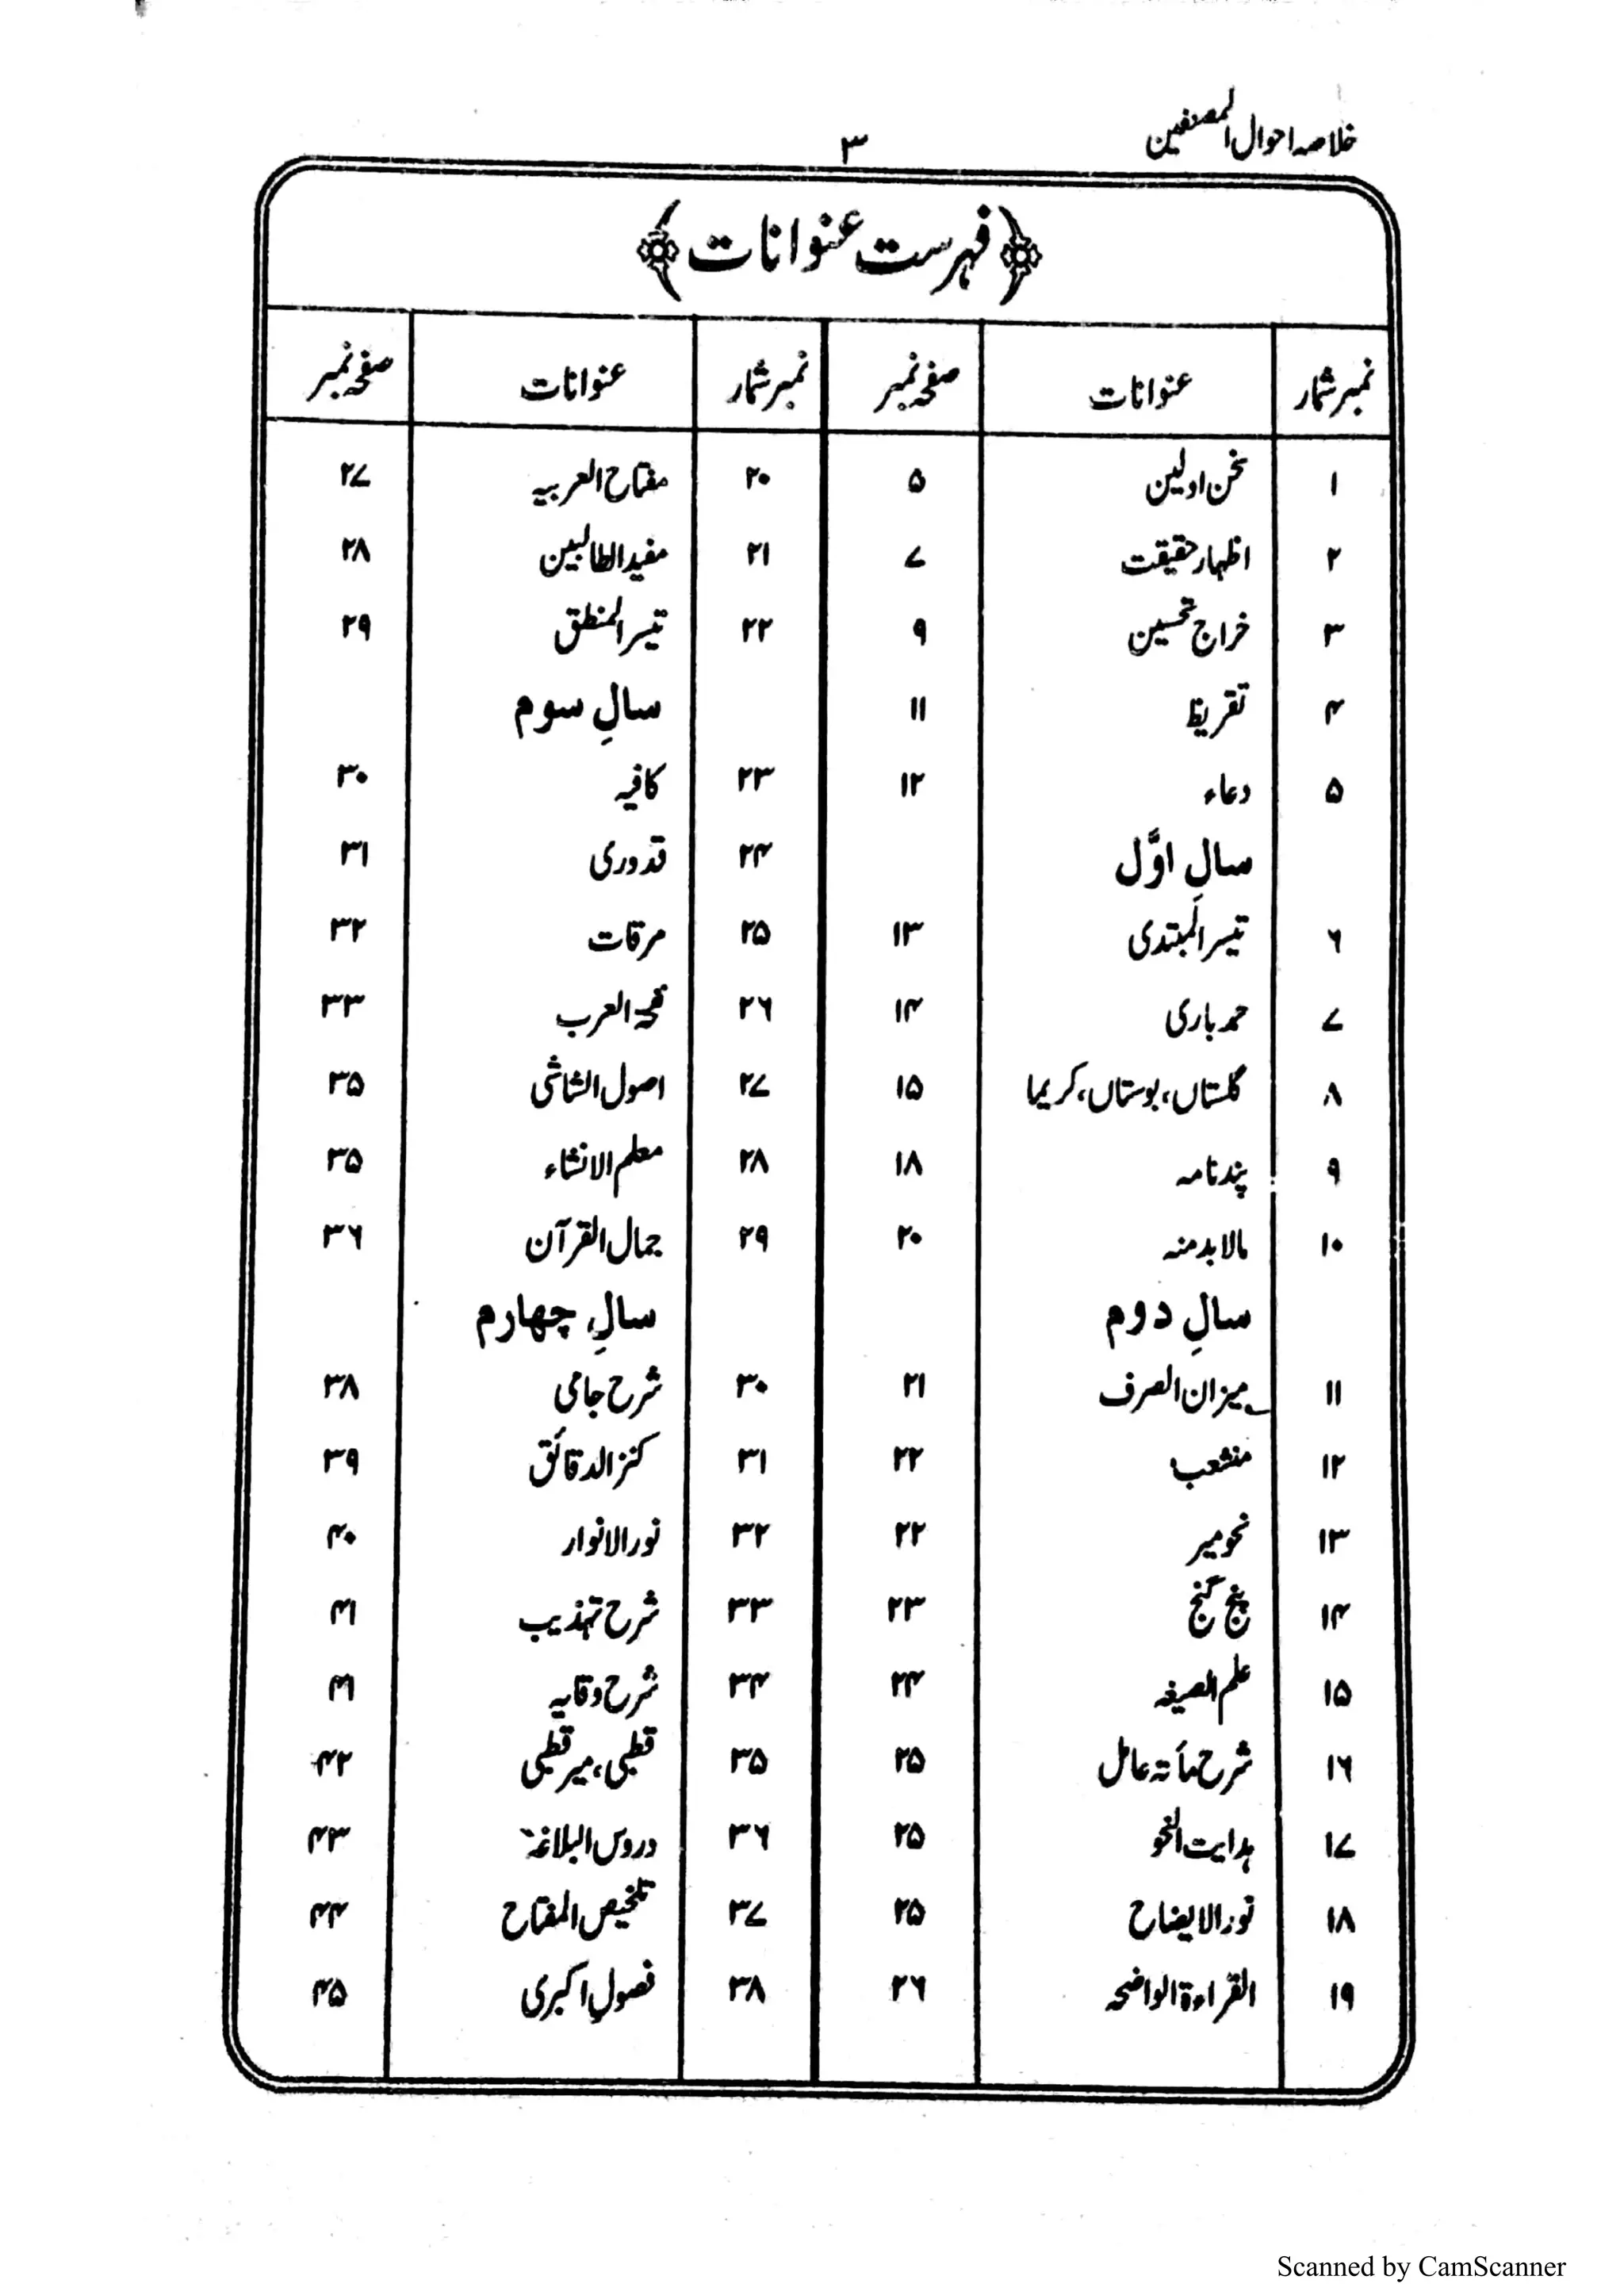 خلاصہ احوال المصنفین
۳
﴿فہرست عنوانات﴾
نمبر شمار عنوانات صفحہ نمبر نمبر شمار عنوانات صفحہ نمبر
۱ سخن اولین ۵ ۲۰ مفتاح العربیہ ۲۷
۲ اظہار حقیقت ۷ ۲۱ مفید الطالبین ۲۸
۳ خراج تحسین ۹ ۲۲ تیسر المنطق ۲۹
۴ تقریظ ۱۱ سالِ سوم
۵ دعاء ۱۲ ۲۳ کافیہ ۳۰
سالِ اوَّل ۲۴ قدوری ۳۱
۶ تیسر المبتدی ۱۳ ۲۵ مرقات ۳۲
۷ حمد باری ۱۴ ۲۶ نفحۃ العرب ۳۳
۸ گلستاں، بوستاں، کریما ۱۵ ۲۷ اصول الشاشی ۳۵
۹ پندنامہ ۱۸ ۲۸ معلم الانشاء ۳۵
۱۰ مالابدمنہ ۲۰ ۲۹ جمال القرآن ۳۶
سالِ دوم سالِ، چهارم
۱۱ میزان الصرف ۲۱ ۳۰ شرح جامی ۳۸
۱۲ منشعب ۲۲ ۳۱ کنز الدقائق ۳۹
۱۳ نحومیر ۲۲ ۳۲ نور الانوار ۴۰
۱۴ پنج گنج ۲۳ ۳۳ شرح تہذیب ۴۱
۱۵ علم الصیغہ ۲۴ ۳۴ شرح وقایہ ۴۱
۱۶ شرح مأتہ عامل ۲۵ ۳۵ قطبی، میر قطبی ۴۲
۱۷ ہدایت النحو ۲۵ ۳۶ دروس البلاغۃ ۴۳
۱۸ نور الایضاح ۲۵ ۳۷ تلخیص المفتاح ۴۴
۱۹ القراءۃ الواضحہ ۲۶ ۳۸ فصولِ اکبری ۴۵
Scanned by CamScanner